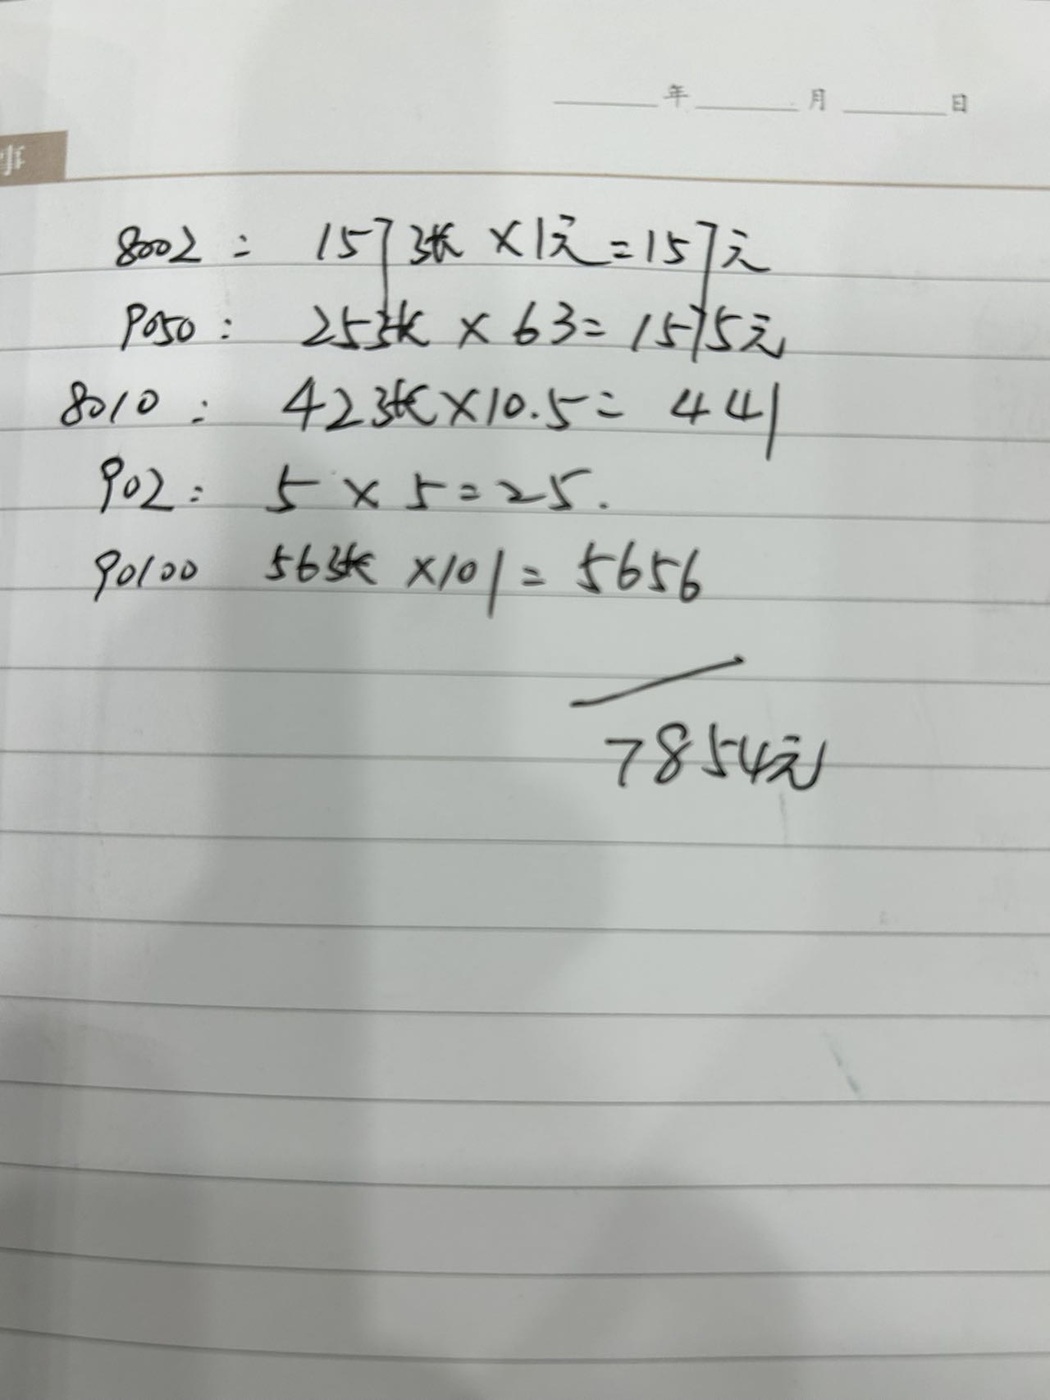 年 月 日
事
8002: 157张×1元=157元
9050: 25张×63=1575元
8010: 42张×10.5=441
902: 5×5=25.
90100 56张×101=5656
7854元